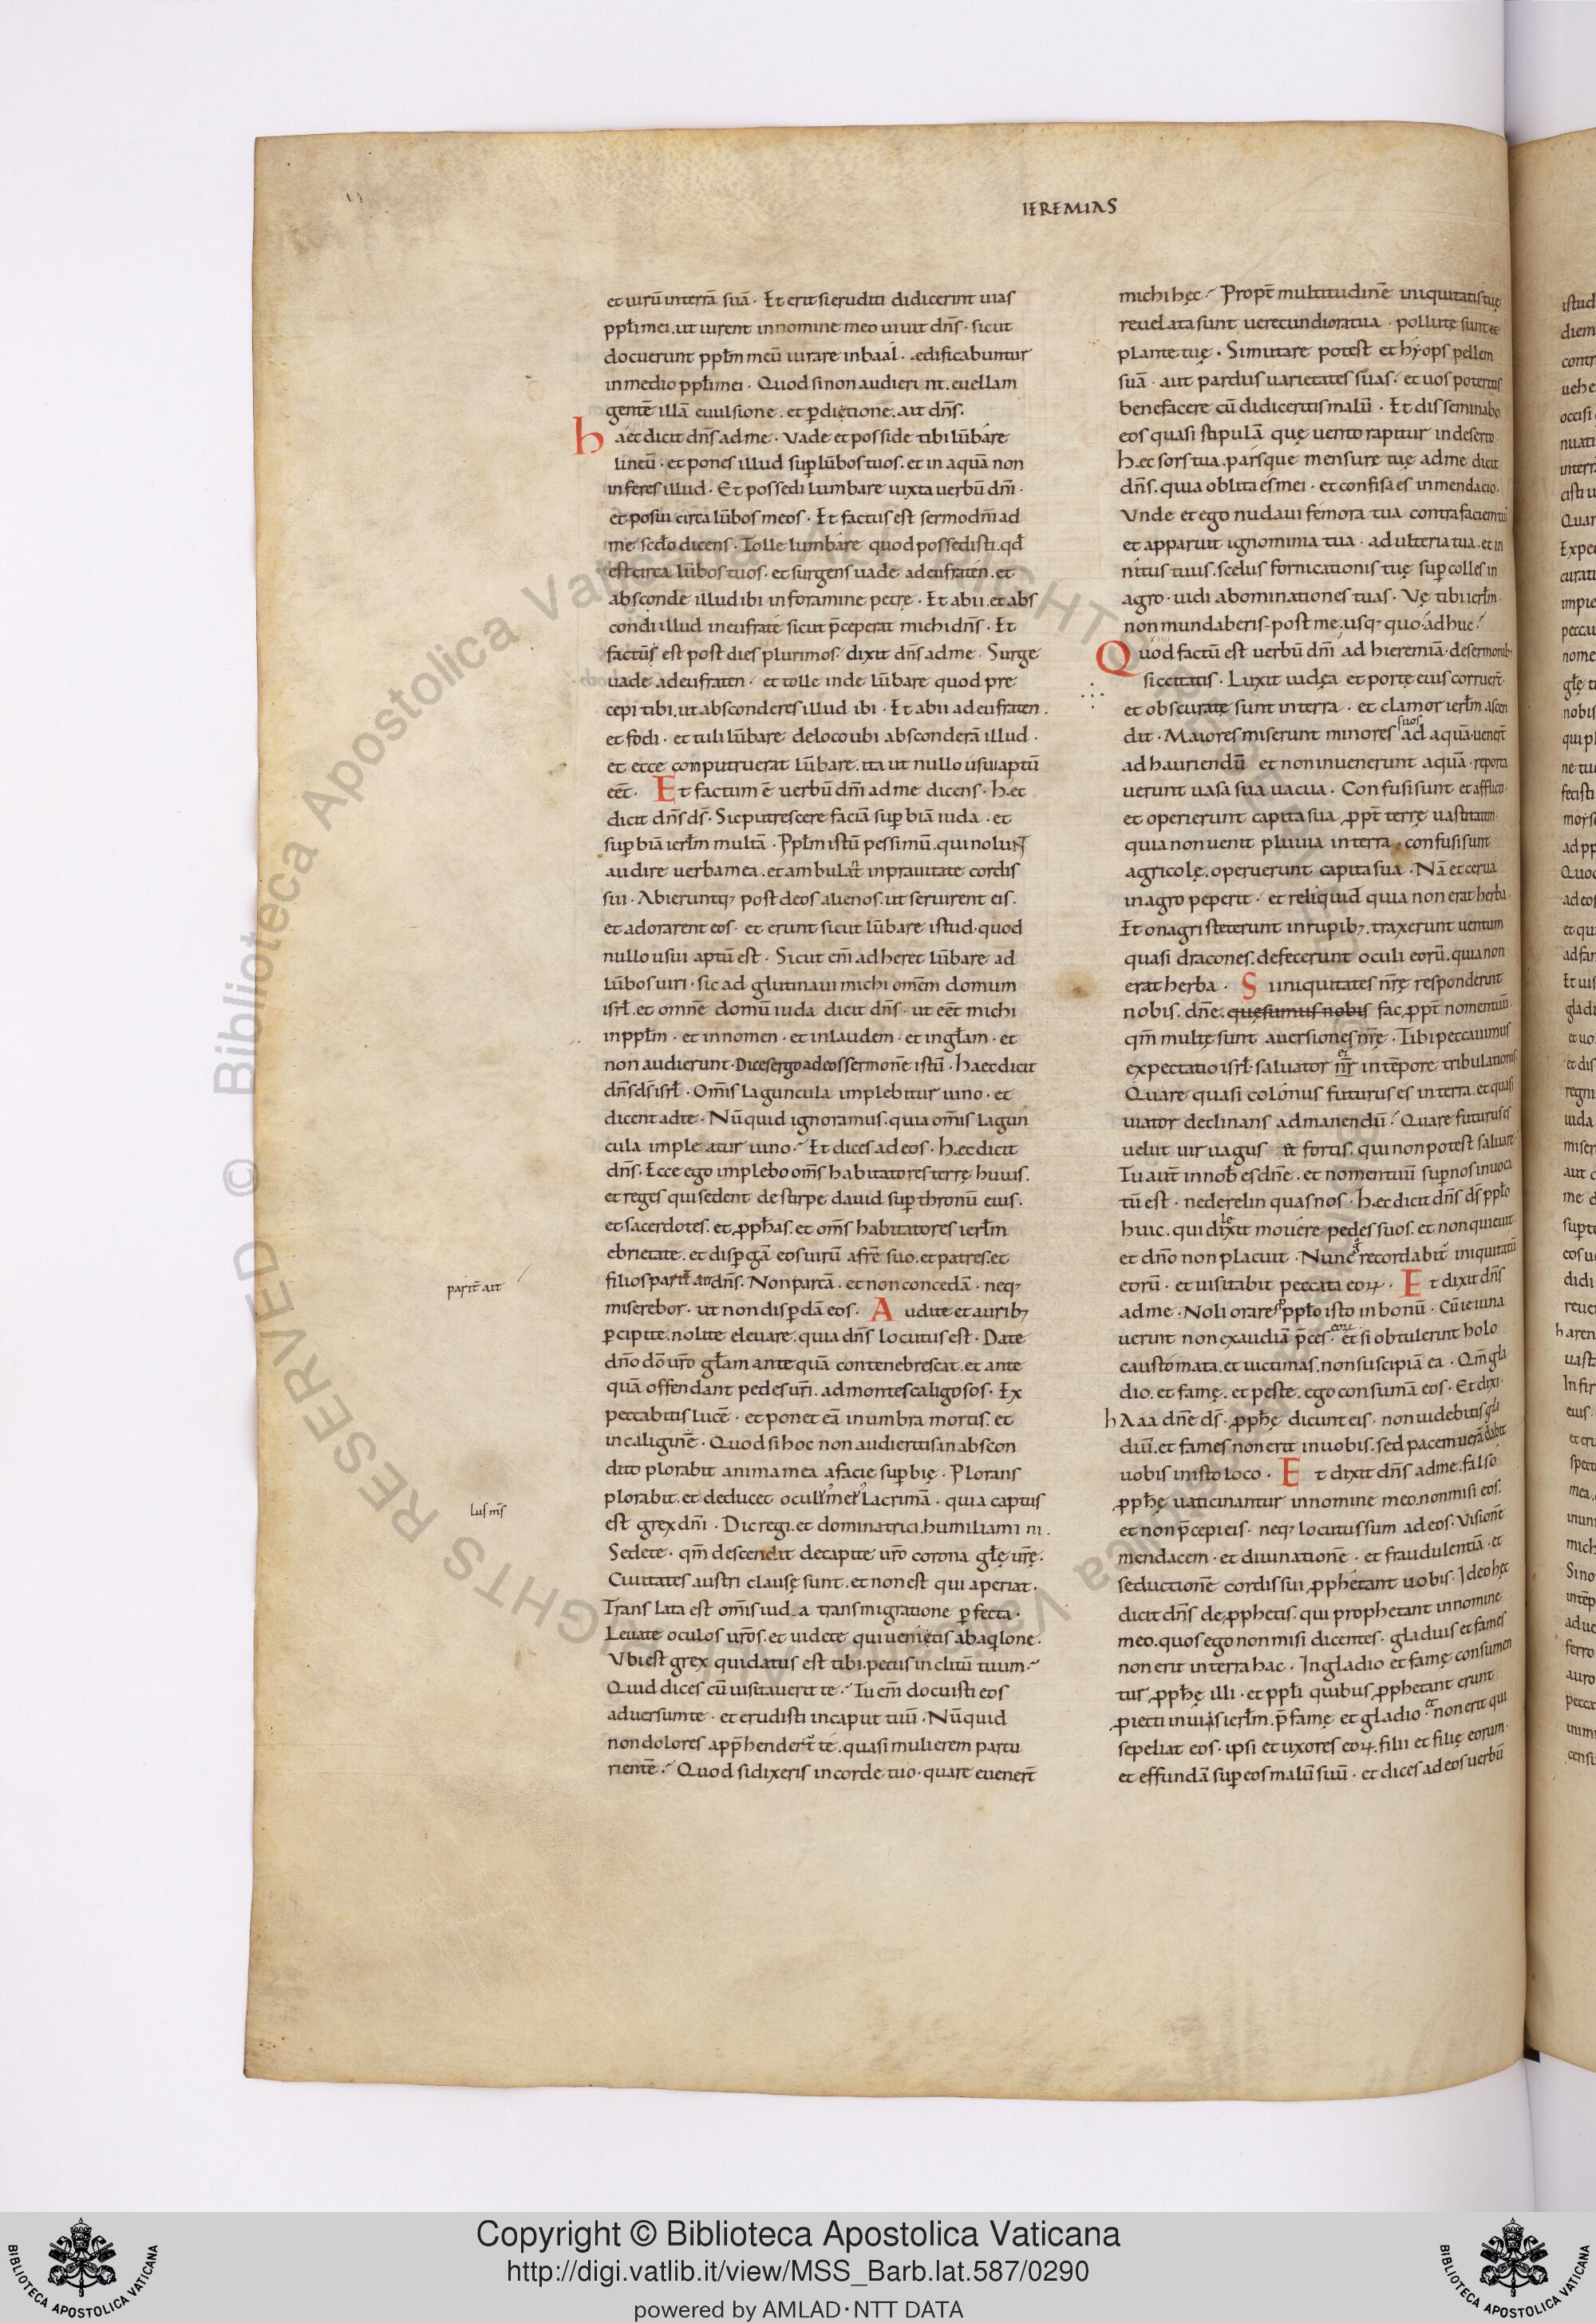 IEREMIAS
et uirū interrā suā · Et erit si eruditi didicerint uias
ppłi mei. ut iurent in nomine meo uiuit dn̄s · sicut
docuerunt ppłm meū iurare in baal · ædificabuntur
in medio ppłi mei · Quod si non audierint. euellam
gentē illā euulsione. et perditione. ait dn̄s.
haec dicit dn̄s ad me · Vade et posside tibi lūbare
lineū · et pones illud sup lūbos tuos. et in aquā non
inferes illud · Et possedi lumbare iuxta uerbū dn̄i ·
et posui circa lūbos meos · Et factus est sermo dn̄i ad
me scdo dicens · Tolle lumbare quod possedisti. qđ
est circa lūbos tuos · et surgens uade ad eufraten. et
absconde illud ibi in foramine petrę · Et abii. et abs
condi illud in eufrate sicut p̄ceperat michi dn̄s · Et
factū est post dies plurimos · dixit dn̄s ad me · Surge
uade ad eufraten · et tolle inde lūbare quod pre
cepi tibi. ut absconderes illud ibi · Et abii ad eufraten.
et fodi · et tuli lūbare de loco ubi absconderā illud ·
et ecce computruerat lūbare. ita ut nullo usui aptū
eēt · Et factum ē uerbū dn̄i ad me dicens · hæc
dicit dn̄s ds̄ · Sic putrescere faciā sup biā iuda · et
sup biā ierłm multā · Ppłm istū pessimū. qui nolunt
audire uerba mea. et ambulant in prauitate cordis
sui · Abieruntq; post deos alienos. ut seruirent eis.
et adorarent eos · et erunt sicut lūbare istud · quod
nullo usui aptū est · Sicut eni adheret lūbare ad
lūbos uiri · sic ad glutinaui michi omēm domum
isrł. et omnē domū iuda dicit dn̄s · ut eēt michi
in ppłm · et in nomen · et in laudem · et in głam · et
non audierunt · Dices ergo ad eos sermonē istū · haec dicit
dn̄s ds̄ isrł · Omīs laguncula implebitur uino · et
dicent ad te · Nūquid ignoramus. quia omīs lagun
cula impleatur uino · Et dices ad eos · hæc dicit
dn̄s · Ecce ego implebo omīs habitatores terrę huius.
et reges qui sedent de stirpe dauid sup thronū eius.
et sacerdotes. et pphas. et omīs habitatores ierłm
ebrietate. et dispgā eos uirū a fr̄e suo. et patres. et
filios parit̄ ait dn̄s. Non parcā · et non concedā · neq;
parit̄ ait
miserebor · ut non dispdā eos · Audite et aurib;
pcipite. nolite eleuare. quia dn̄s locutus est · Date
dn̄o dō uro głam ante quā contenebrescat. et ante
quā offendant pedes uri. ad montes caligosos · Ex
pectabitis lucē · et ponet eā in umbra mortis. et
in caliginē · Quod si hoc non audieritis in abscon
dito plorabit anima mea a facie sup bię · Plorans
plorabit. et deducet oculus meus lacrimā · quia captus
lus ms̄
est grex dn̄i · Dic regi. et dominatrici. humiliamini.
Sedete · qm̄ descendit de capite uro corona głę urę.
Ciuitates austri clausę sunt. et non est qui aperiat.
Translata est omīs iuda transmigratione pfecta ·
Leuate oculos uros. et uidete qui uenietis ab aqlone.
Vbi est grex qui datus est tibi. pecus inclitū tuum ·
Quid dices cū uisitauerit te · Tu em̄ docuisti eos
aduersum te · et erudisti in caput tuū · Nūquid
non dolores app̄hendert̄ te. quasi mulierem partu
rientē · Quod si dixeris in corde tuo · quare euenert̄
michi hęc · Propt̄ multitudinē iniquitatis tuę
reuelata sunt uerecundiora tua · pollutę sunt
plante tuę · Si mutare potest ethyops pellem
suā · aut pardus uarietates suas · et uos poteritis
benefacere cū didiceritis malū · Et disseminabo
eos quasi stipulā quę uento rapitur in deserto.
Hæc sors tua. parsque mensure tuę ad me dicit
dn̄s. quia oblita es mei · et confisa es in mendacio.
Vnde et ego nudaui femora tua contra faciem tuā
et apparuit ignominia tua · adulteria tua. et in
nitus tuus. scelus fornicationis tuę sup colles in
agro · uidi abominationes tuas · Vę tibi ierłm.
non mundaberis post me. usq; quo adhuc ·
Quod factū est uerbū dn̄i ad hieremiā · de sermonib;
siccitatis · Luxit iudęa et portę eius corruert̄.
et obscuratę sunt in terra · et clamor ierłm ascen
dit · Maiores miserunt minores suos ad aquā · uenert̄
ad hauriendū et non inuenerunt aquā · reporta
uerunt uasa sua uacua · Confusi sunt et afflicti ·
et operierunt capita sua ppt̄ terrę uastitatem.
quia non uenit pluuia in terra · confusi sunt
agricolę. operuerunt capita sua · Nā et cerua
in agro peperit · et reliquid quia non erat herba.
Et onagri steterunt in rupib;. traxerunt uentum
quasi dracones. defecerunt oculi eorū. quia non
erat herba · Si iniquitates nr̄ę responderint
nobis. dn̄e. quęsumus nobis fac ppt̄ nomen tuū.
qm̄ multę sunt auersiones nr̄ę · Tibi peccauimus
expectatio isrł · saluator et nr̄ in tēpore tribulationis
Quare quasi colonus futurus es in terra. et quasi
uiator declinans ad manendū · Quare futurus es
uelut uir uagus ut fortis. qui non potest saluare
Tu aut̄ in nob̄ es dn̄e · et nomen tuū sup nos inuoca
tū est · ne derelinquas nos · Hæc dicit dn̄s ds̄ ppło
huic. qui dilexit mouere pedes suos. et non quieuit.
et dn̄o non placuit · Nunc recordabit iniquitatū
eorū · et uisitabit peccata eoꝝ · Et dixit dn̄s
ad me · Noli orare p ppło isto in bonū · Cū ieiuna
uerint non exaudiā p̄ces eorū · et si obtulerint holo
caustomata. et uictimas. non suscipiā ea · Qm̄ gla
dio. et famę. et peste. ego consumā eos · Et dixi ·
h Aaa dn̄e ds̄ · pphę dicunt eis · non uidebitis gla
diū. et fames non erit in uobis. sed pacem uerā dabit
uobis in isto loco · Et dixit dn̄s ad me. falso
pphę uaticinantur in nomine meo. non misi eos.
et non p̄cepi eis · neq; locutus sum ad eos · Visionē
mendacem · et diuinationē · et fraudulentiā · et
seductionē cordis sui pphetant uobis · Ideo hęc
dicit dn̄s de pphetis. qui prophetant in nomine
meo. quos ego non misi dicentes · gladius et fames
non erit in terra hac · In gladio et famę consumen
tur pphę illi · et ppłi quibus pphetant erunt
piecti in uiis ierłm. p̄ famę et gladio · et non erit qui
sepeliat eos · ipsi et uxores eoꝝ. filii et filię eorum ·
et effundā sup eos malū suū · et dices ad eos uerbū
Copyright © Biblioteca Apostolica Vaticana
http://digi.vatlib.it/view/MSS_Barb.lat.587/0290
powered by AMLAD·NTT DATA
BIBLIOTECA APOSTOLICA VATICANA
BIBLIOTECA APOSTOLICA VATICANA